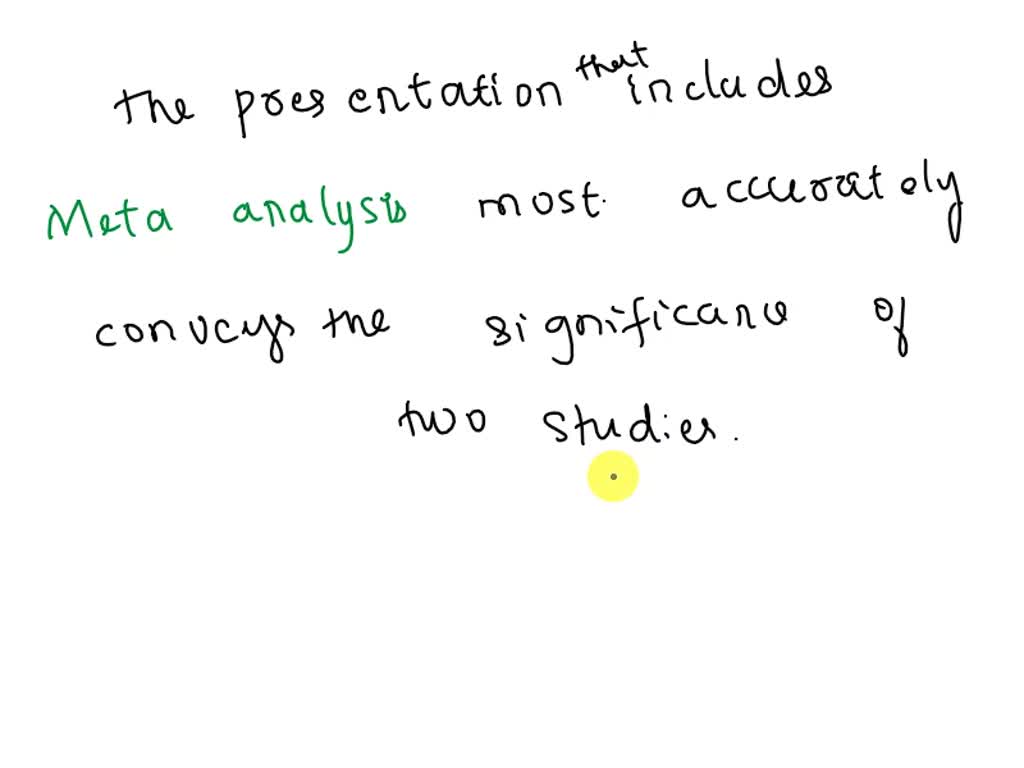 the presentation that includes
Meta analysis most accurately
conveys the significance of
two studies.